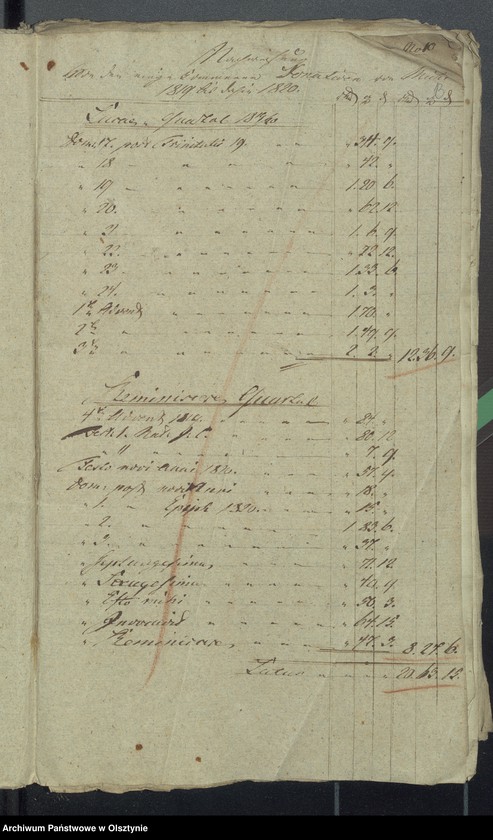 No 10
Nachweisung
Von den eingekommenen Donativen von Mich
1819 bis dahin 1820.
Lucae, Quartal 1819/20
Dom: 17. post Trinitatis 19. " 34. 9.
" 18 " 42. "
" 19 1. 20. 6.
" 20. " 62. 12
" 21 1. 6. 9
" 22. " 22. 12.
" 23 1. 33. 6.
" 24. 1. 3. "
1te Advent 1. 70. "
2te 1. 49. 9.
3te 2. 2. " 12. 36. 9.
Reminiscere, Quartal
4te Advent 1819.
Fest. 1. Nat. J. C. " 80. 12
" II " 7. 9
Festo novi anni 1820.
Dom: post novi Anni " 18. "
" 1. Epiph 1820. " 15. "
" 2. 1. 83. 6.
" 3. " 37. "
" Septuagesima, " 72. 12
" Sexagesima " 70. 9
" Esto mihi " 36. 3.
" Invocavit " 64. 15.
" Reminiscere, " 47. 3. 8. 27. 6.
Latus 20. 63. 15.
Archiwum Państwowe w Olsztynie